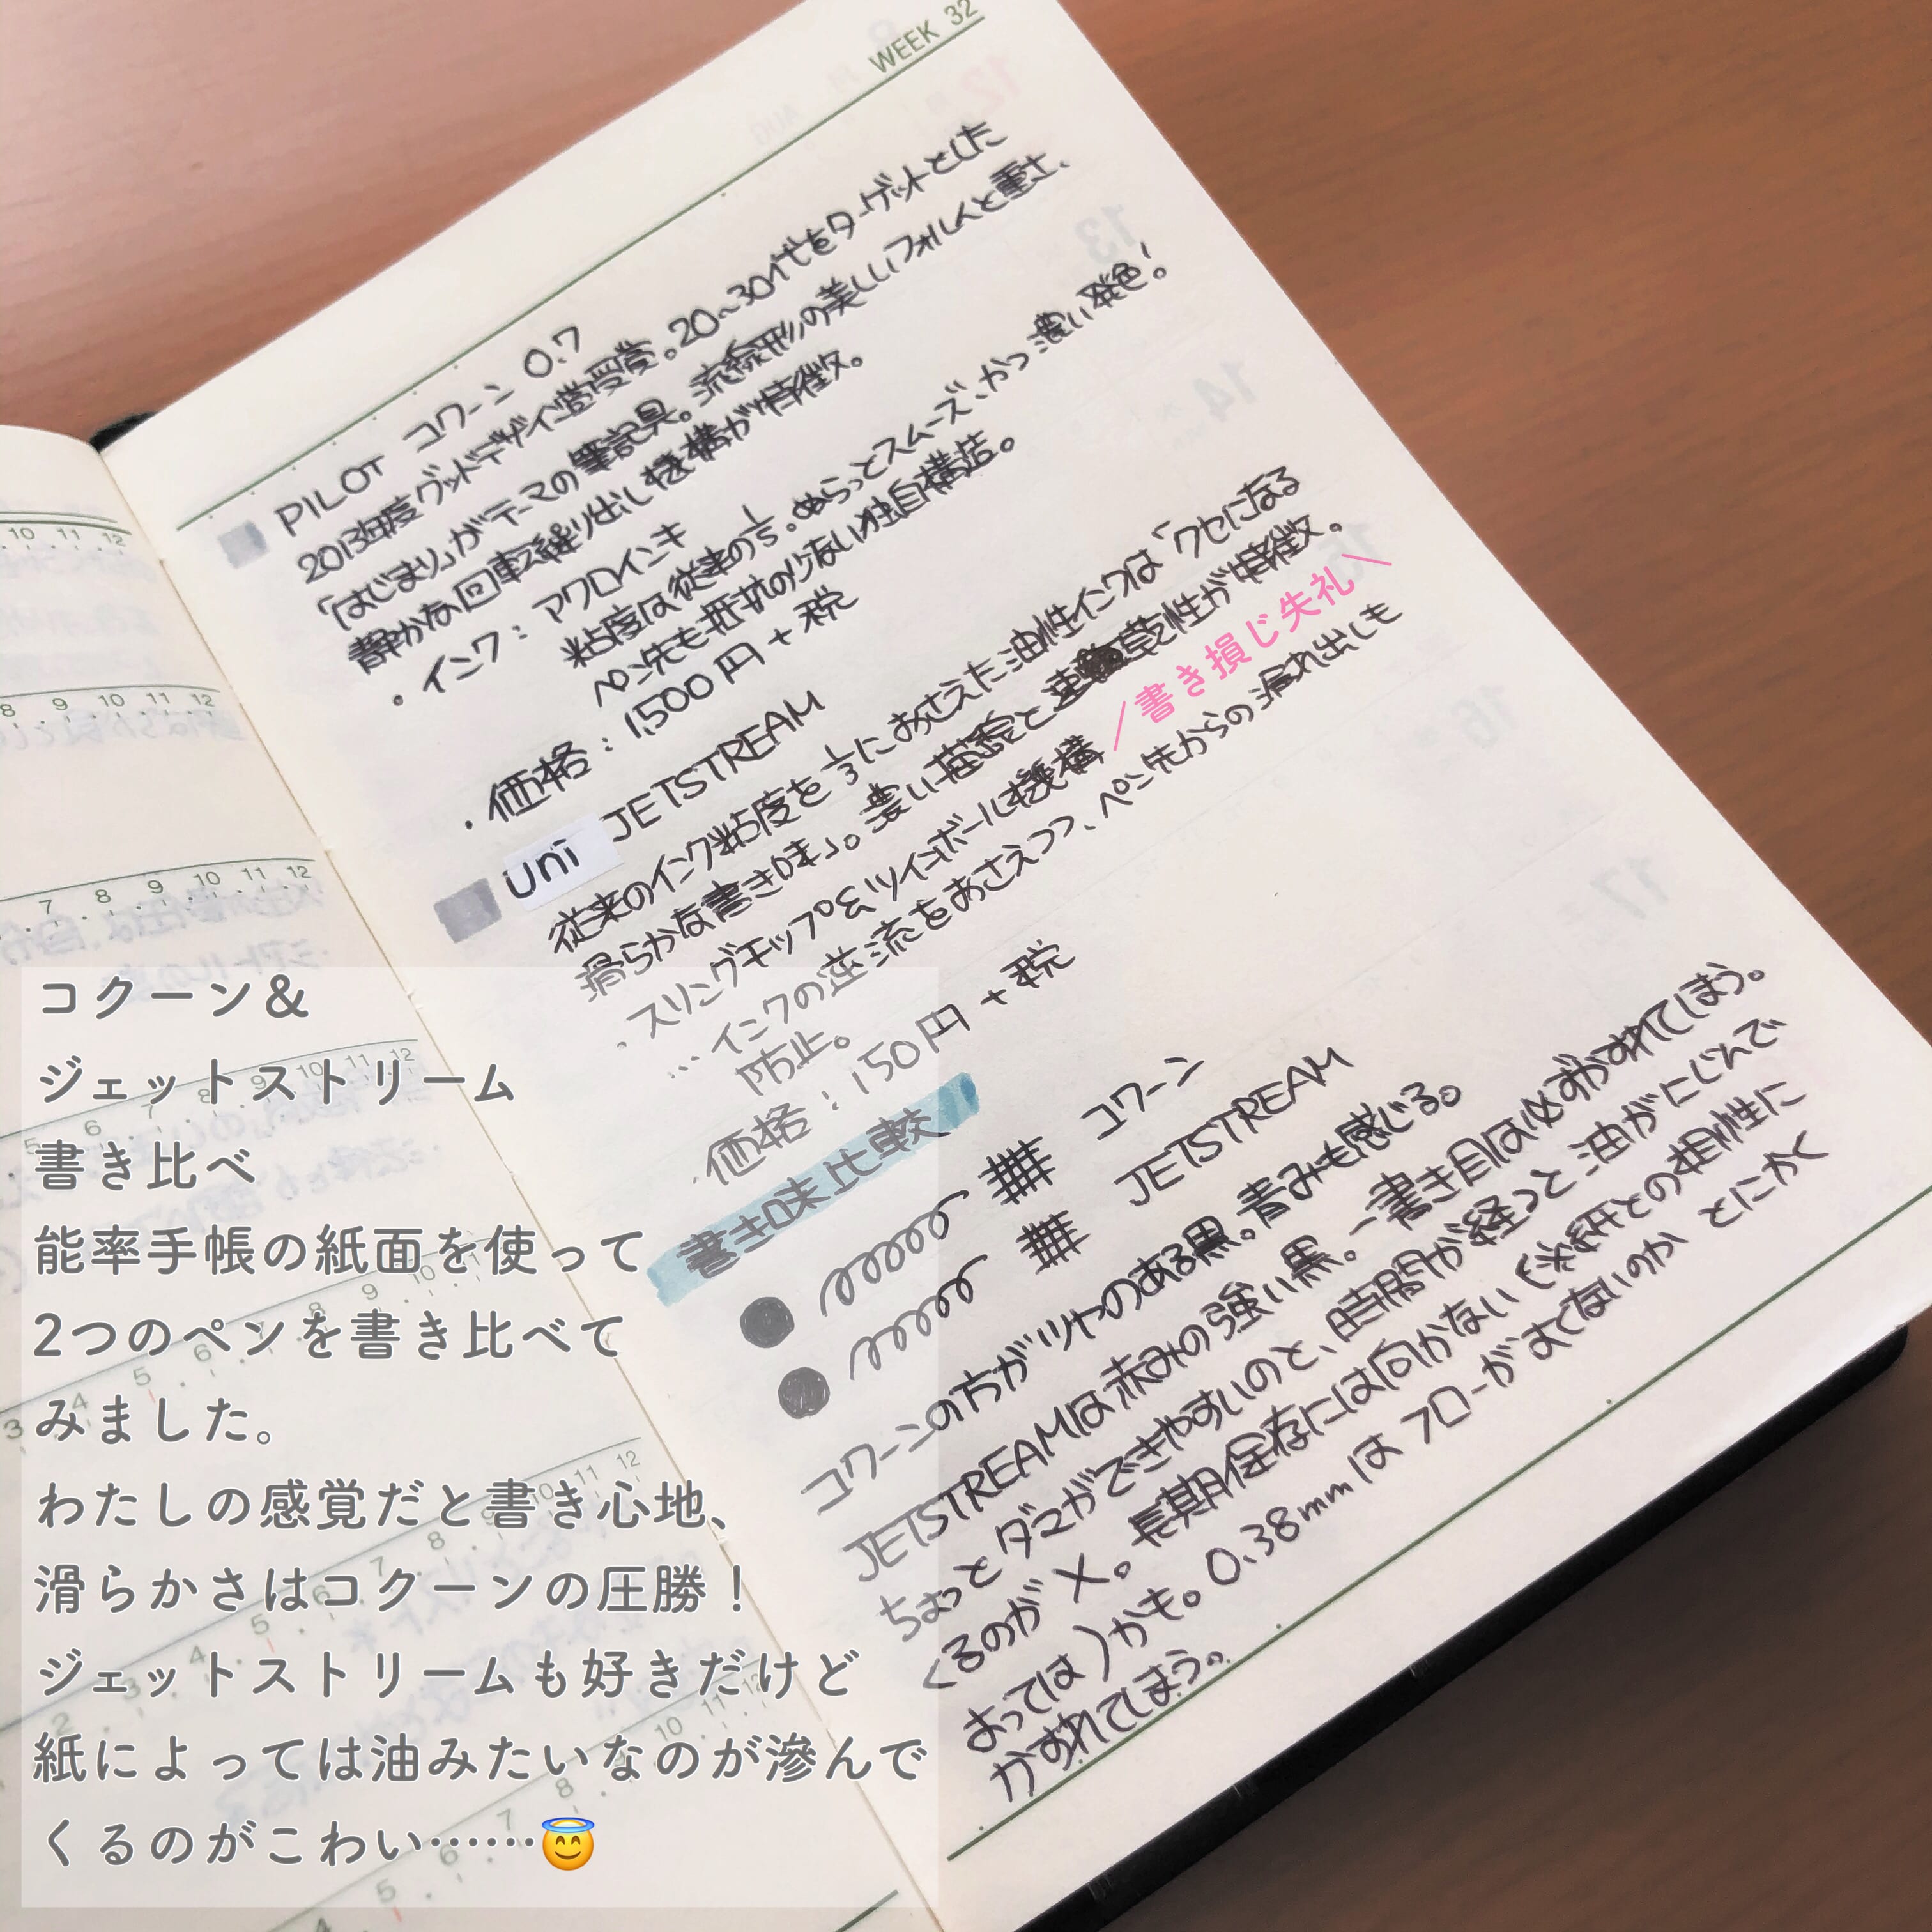 WEEK 32
PILOT コクーン 0.7
2013年度グッドデザイン賞受賞。20〜30代をターゲットとした
「はじまり」がテーマの筆記具。流線形の美しいフォルムと重さ、
静かな回転繰り出し機構が特徴。
・インク：アクロインキ
粘度は従来の1/5。ぬらっとスムーズ、かつ濃い発色！
ペン先も抵抗の少ない独自構造。
・価格：1,500円+税
uni JETSTREAM
従来のインク粘度を1/3におさえた油性インクは「クセになる
滑らかな書き味」。濃い描線と速乾性が特徴。
・スリングチップ&ツインボール機構
／書き損じ失礼＼
…インクの逆流をおさえつつ、ペン先からの漏れ出しも
防止。
・価格：150円+税
書き味比較
コクーン
JETSTREAM
コクーンの方がツヤのある黒。青みも感じる。
JETSTREAMは赤みの強い黒。一書き目は必ずかすれてしまう。
ちょっとダマができやすいのと、時間が経つと油がにじんで
くるのが×。長期保存には向かない（※紙との相性に
よっては）かも。0.38mmはフローがよくないのか とにかく
かすれてしまう。
コクーン&
ジェットストリーム
書き比べ
能率手帳の紙面を使って
2つのペンを書き比べて
みました。
わたしの感覚だと書き心地、
滑らかさはコクーンの圧勝！
ジェットストリームも好きだけど
紙によっては油みたいなのが滲んで
くるのがこわい……😇